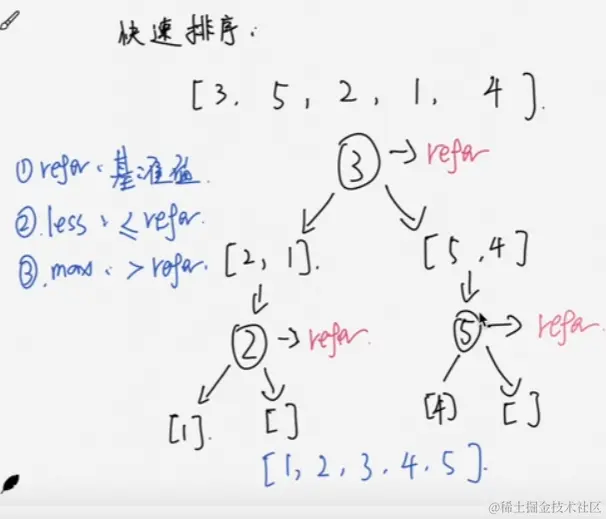 快速排序:
[3, 5, 2, 1, 4].
③ → refer
① refer: 基准值.
② less: ≤ refer.
③ more: > refer.
[2, 1].
[5, 4]
② → refer.
⑤ → refer.
[1].
[ ]
[4]
[ ]
[1, 2, 3, 4, 5].
@稀土掘金技术社区